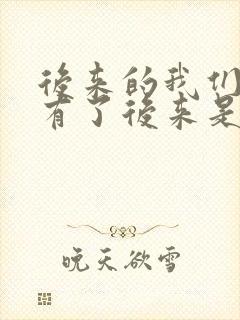 後来的我们
有了後来是
晚天欲雪